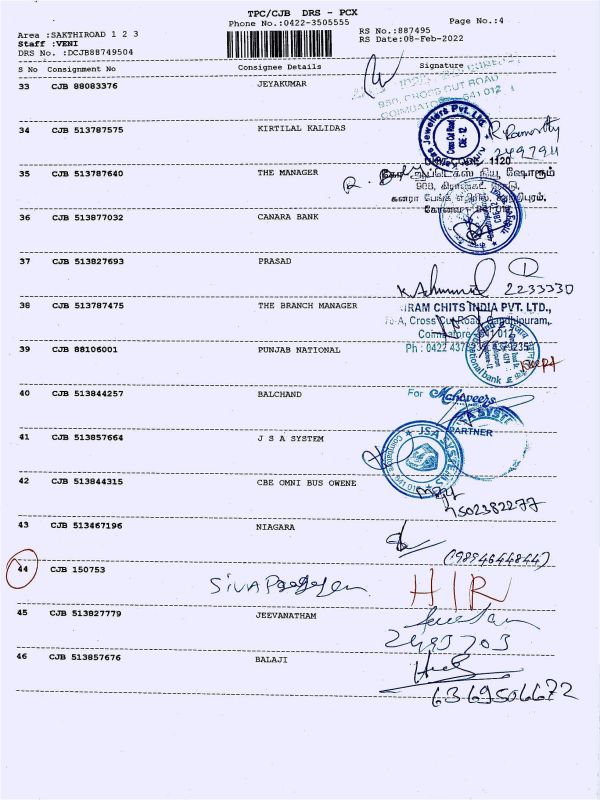 TPC/CJB DRS - PCX
Phone No.:0422-3505555
Page No.:4
Area :SAKTHIROAD 1 2 3
RS No.:887495
Staff :VENI
RS Date:08-Feb-2022
DRS No. :DCJB88749504
S No Consignment No Consignee Details Signature
33 CJB 88083376 JEYAKUMAR
950, CROSS CUT ROAD
COIMBATORE - 641 012
34 CJB 513787575 KIRTILAL KALIDAS
Jewellers Pvt. Ltd.
Cross Cut Road
CBE - 12
2497911
35 CJB 513787640 THE MANAGER
1120
36 CJB 513877032 CANARA BANK
37 CJB 513827693 PRASAD
2233330
38 CJB 513787475 THE BRANCH MANAGER
IRAM CHITS INDIA PVT. LTD.,
Cross Cut Road, Gandhipuram,
Coimbatore
39 CJB 88106001 PUNJAB NATIONAL
Ph : 0422
national bank
40 CJB 513844257 BALCHAND
For Mahaveers
PARTNER
41 CJB 513857664 J S A SYSTEM
JSA SYSTEMS
42 CJB 513844315 CBE OMNI BUS OWENE
9502382277
43 CJB 513467196 NIAGARA
(9894644844)
44 CJB 150753
H/R
45 CJB 513827779 JEEVANATHAM
2493703
46 CJB 513857676 BALAJI
6369506672